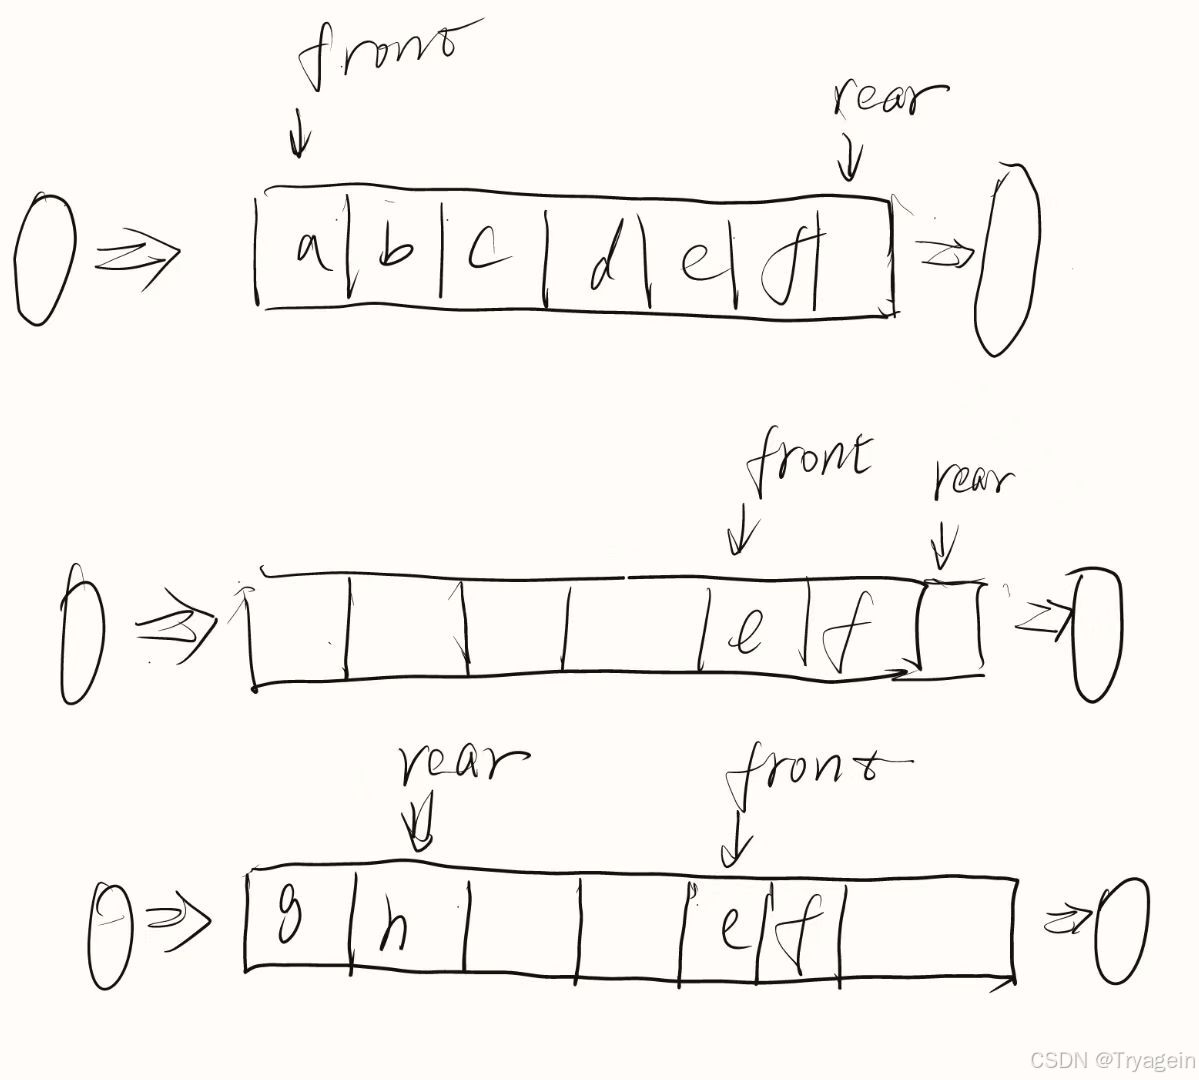 front
rear
a b c d e f
front
rear
e f
rear front
g h e f
CSDN @Tryagein